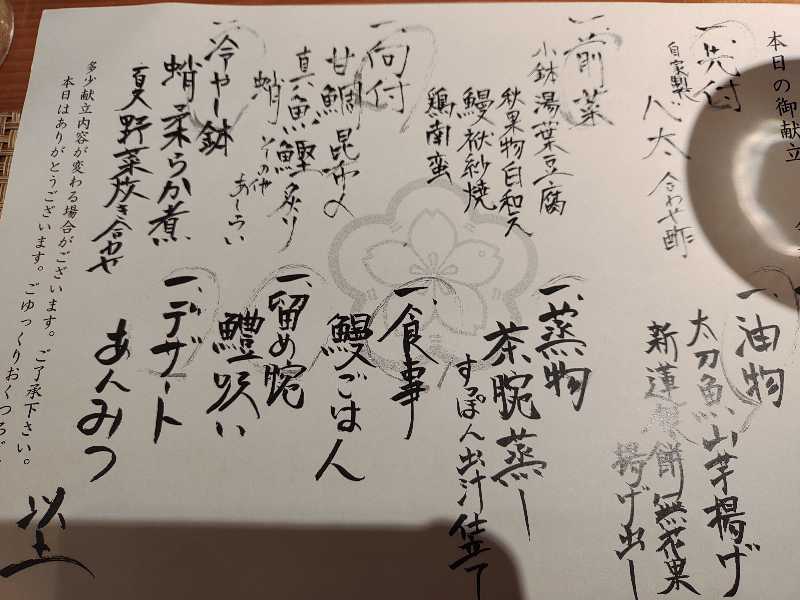 本日の御献立
一、先付
自家製 合わせ酢
一、前菜
小鉢湯葉豆腐
秋果物白和え
鰻袱紗焼
鶏南蛮
一、向付
甘鯛昆布〆
真魚鰹炙り
蛸 その他あしらい
冷やし鉢
蛸柔らか煮
夏野菜炊き合わせ
一、油物
太刀魚山芋揚げ
新蓮根餅無花果
揚げ出し
一、蒸物
茶腕蒸し
すっぽん出汁仕立て
一、食事
鰻ごはん
一、留め椀
鱧吸い
一、デザート
あんみつ
多少献立内容が変わる場合がございます。ご了承下さい。
本日はありがとうございます。ごゆっくりおくつろぎ
以上